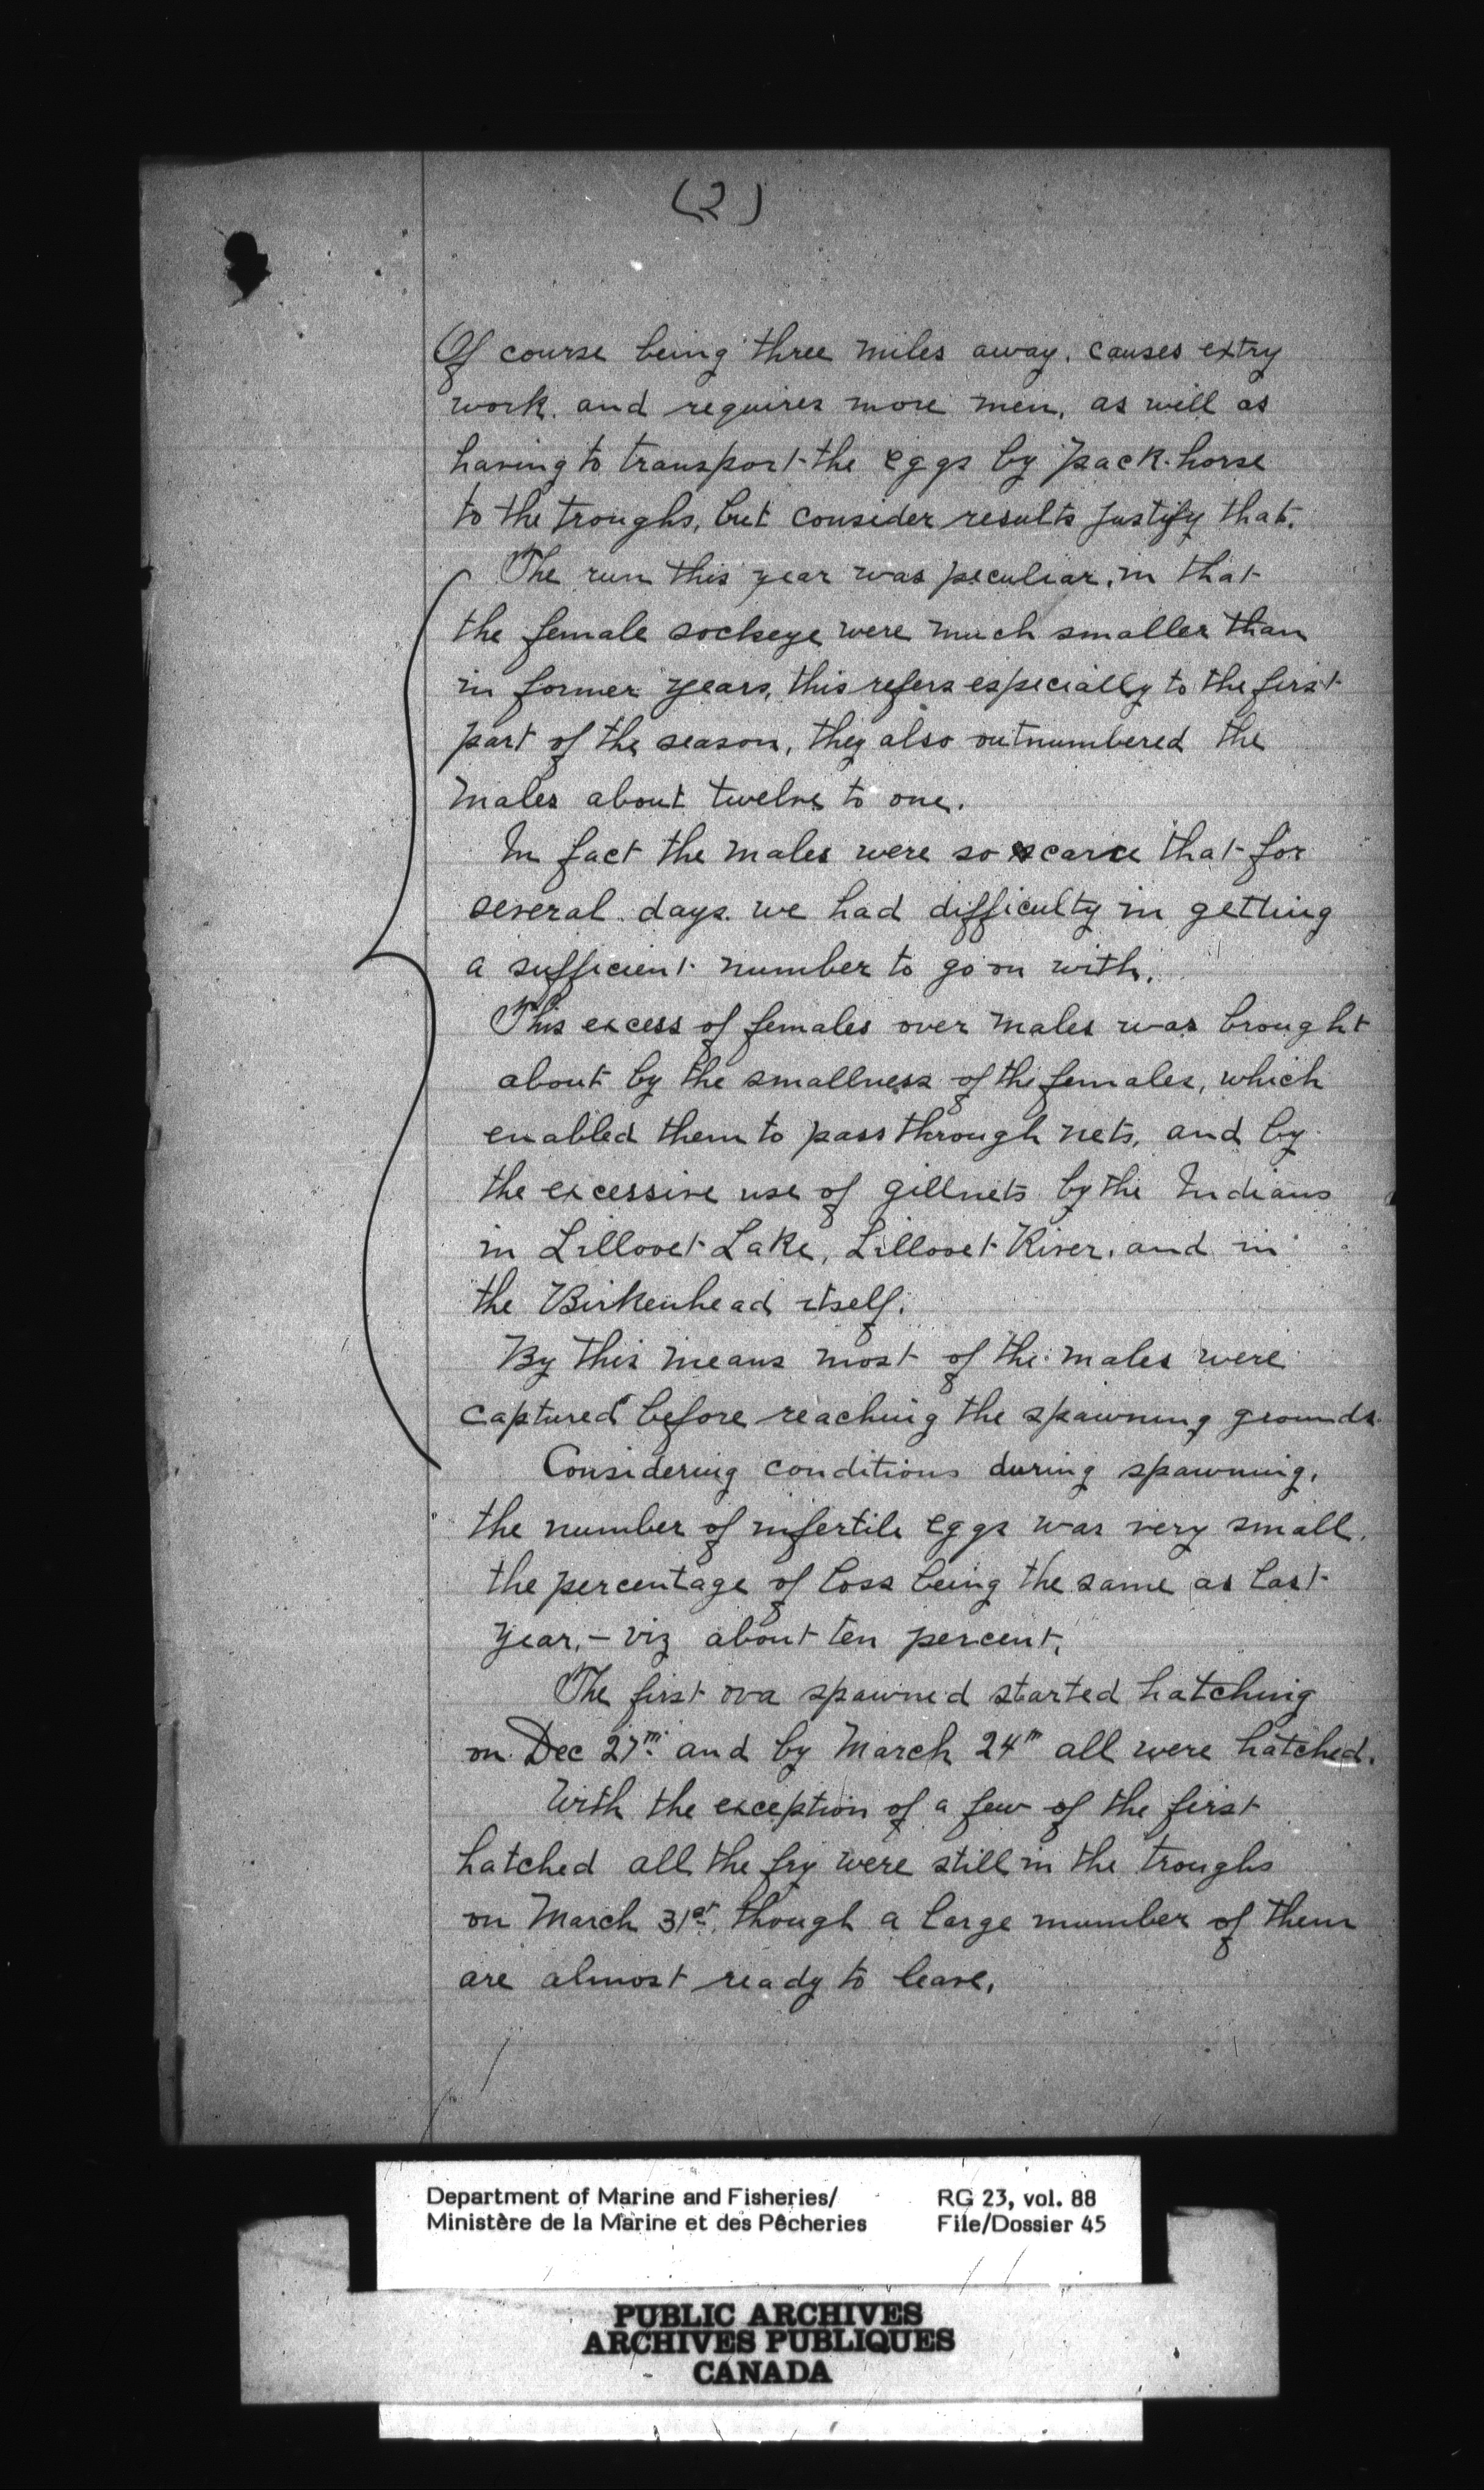 (2)
Of course being three miles away, causes extry
work. and requires more men, as will as
having to transport the eggs by pack-horse
to the troughs, but consider results justify that.
The run this year was peculiar, in that
the female sockeye were much smaller than
in former years, this refers especially to the first
part of the season, they also outnumbered the
males about twelve to one.
In fact the males were so scarce that for
several days we had difficulty in getting
a sufficient number to go on with.
This excess of females over males was brought
about by the smallness of the females, which
enabled them to pass through nets, and by
the excessive use of gillnets by the Indians
in Lillooet Lake, Lillooet River, and in
the Birkenhead itself.
By this means most of the males were
captured before reaching the spawning grounds.
Considering conditions during spawning,
the number of infertile eggs was very small,
the percentage of loss being the same as last
year, - viz about ten percent.
The first ova spawned started hatching
on Dec 27th and by March 24th all were hatched.
With the exception of a few of the first
hatched all the fry were still in the troughs
on March 31st, though a large number of them
are almost ready to leave.
Department of Marine and Fisheries/ RG 23, vol. 88
Ministère de la Marine et des Pêcheries File/Dossier 45
PUBLIC ARCHIVES
ARCHIVES PUBLIQUES
CANADA